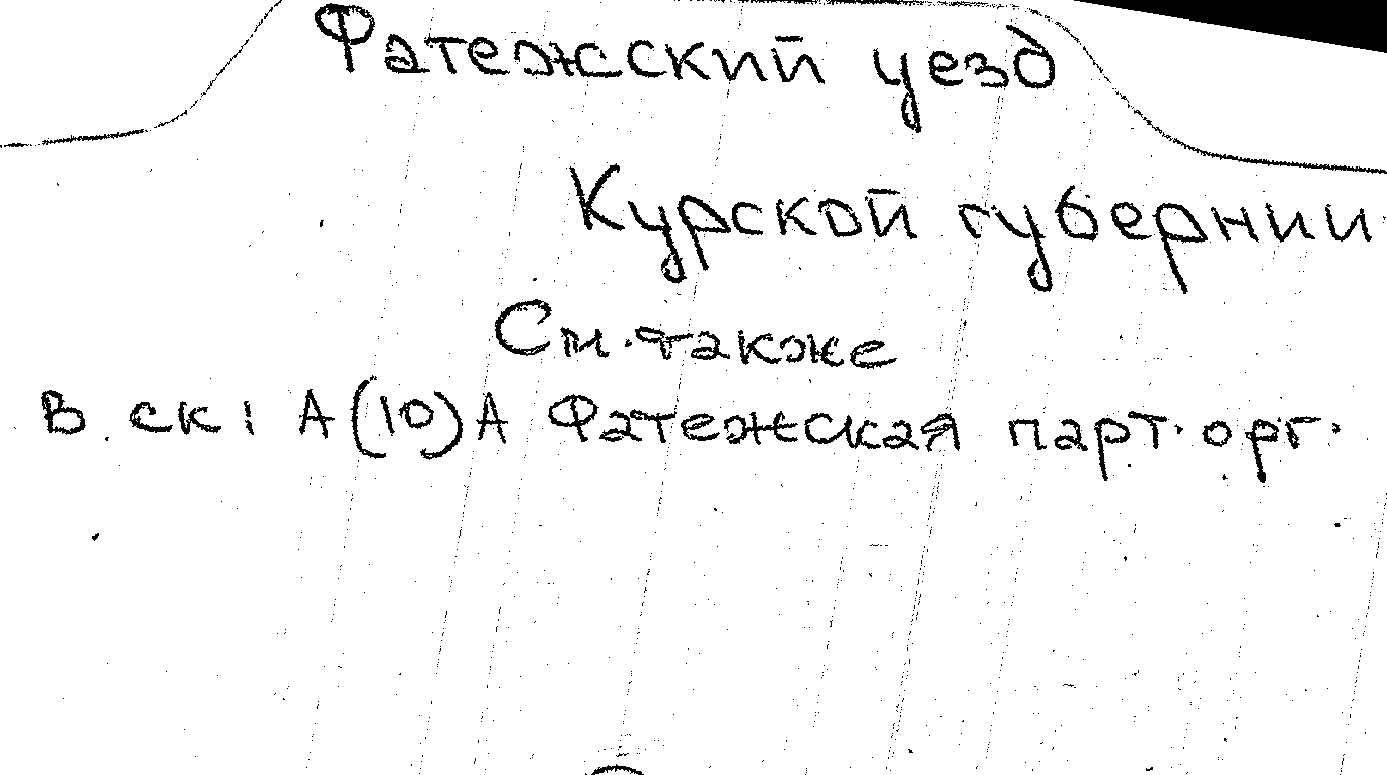 Фатежский уезд
Курской губернии
См. также
в ск: А(10)А Фатежская парт. орг.